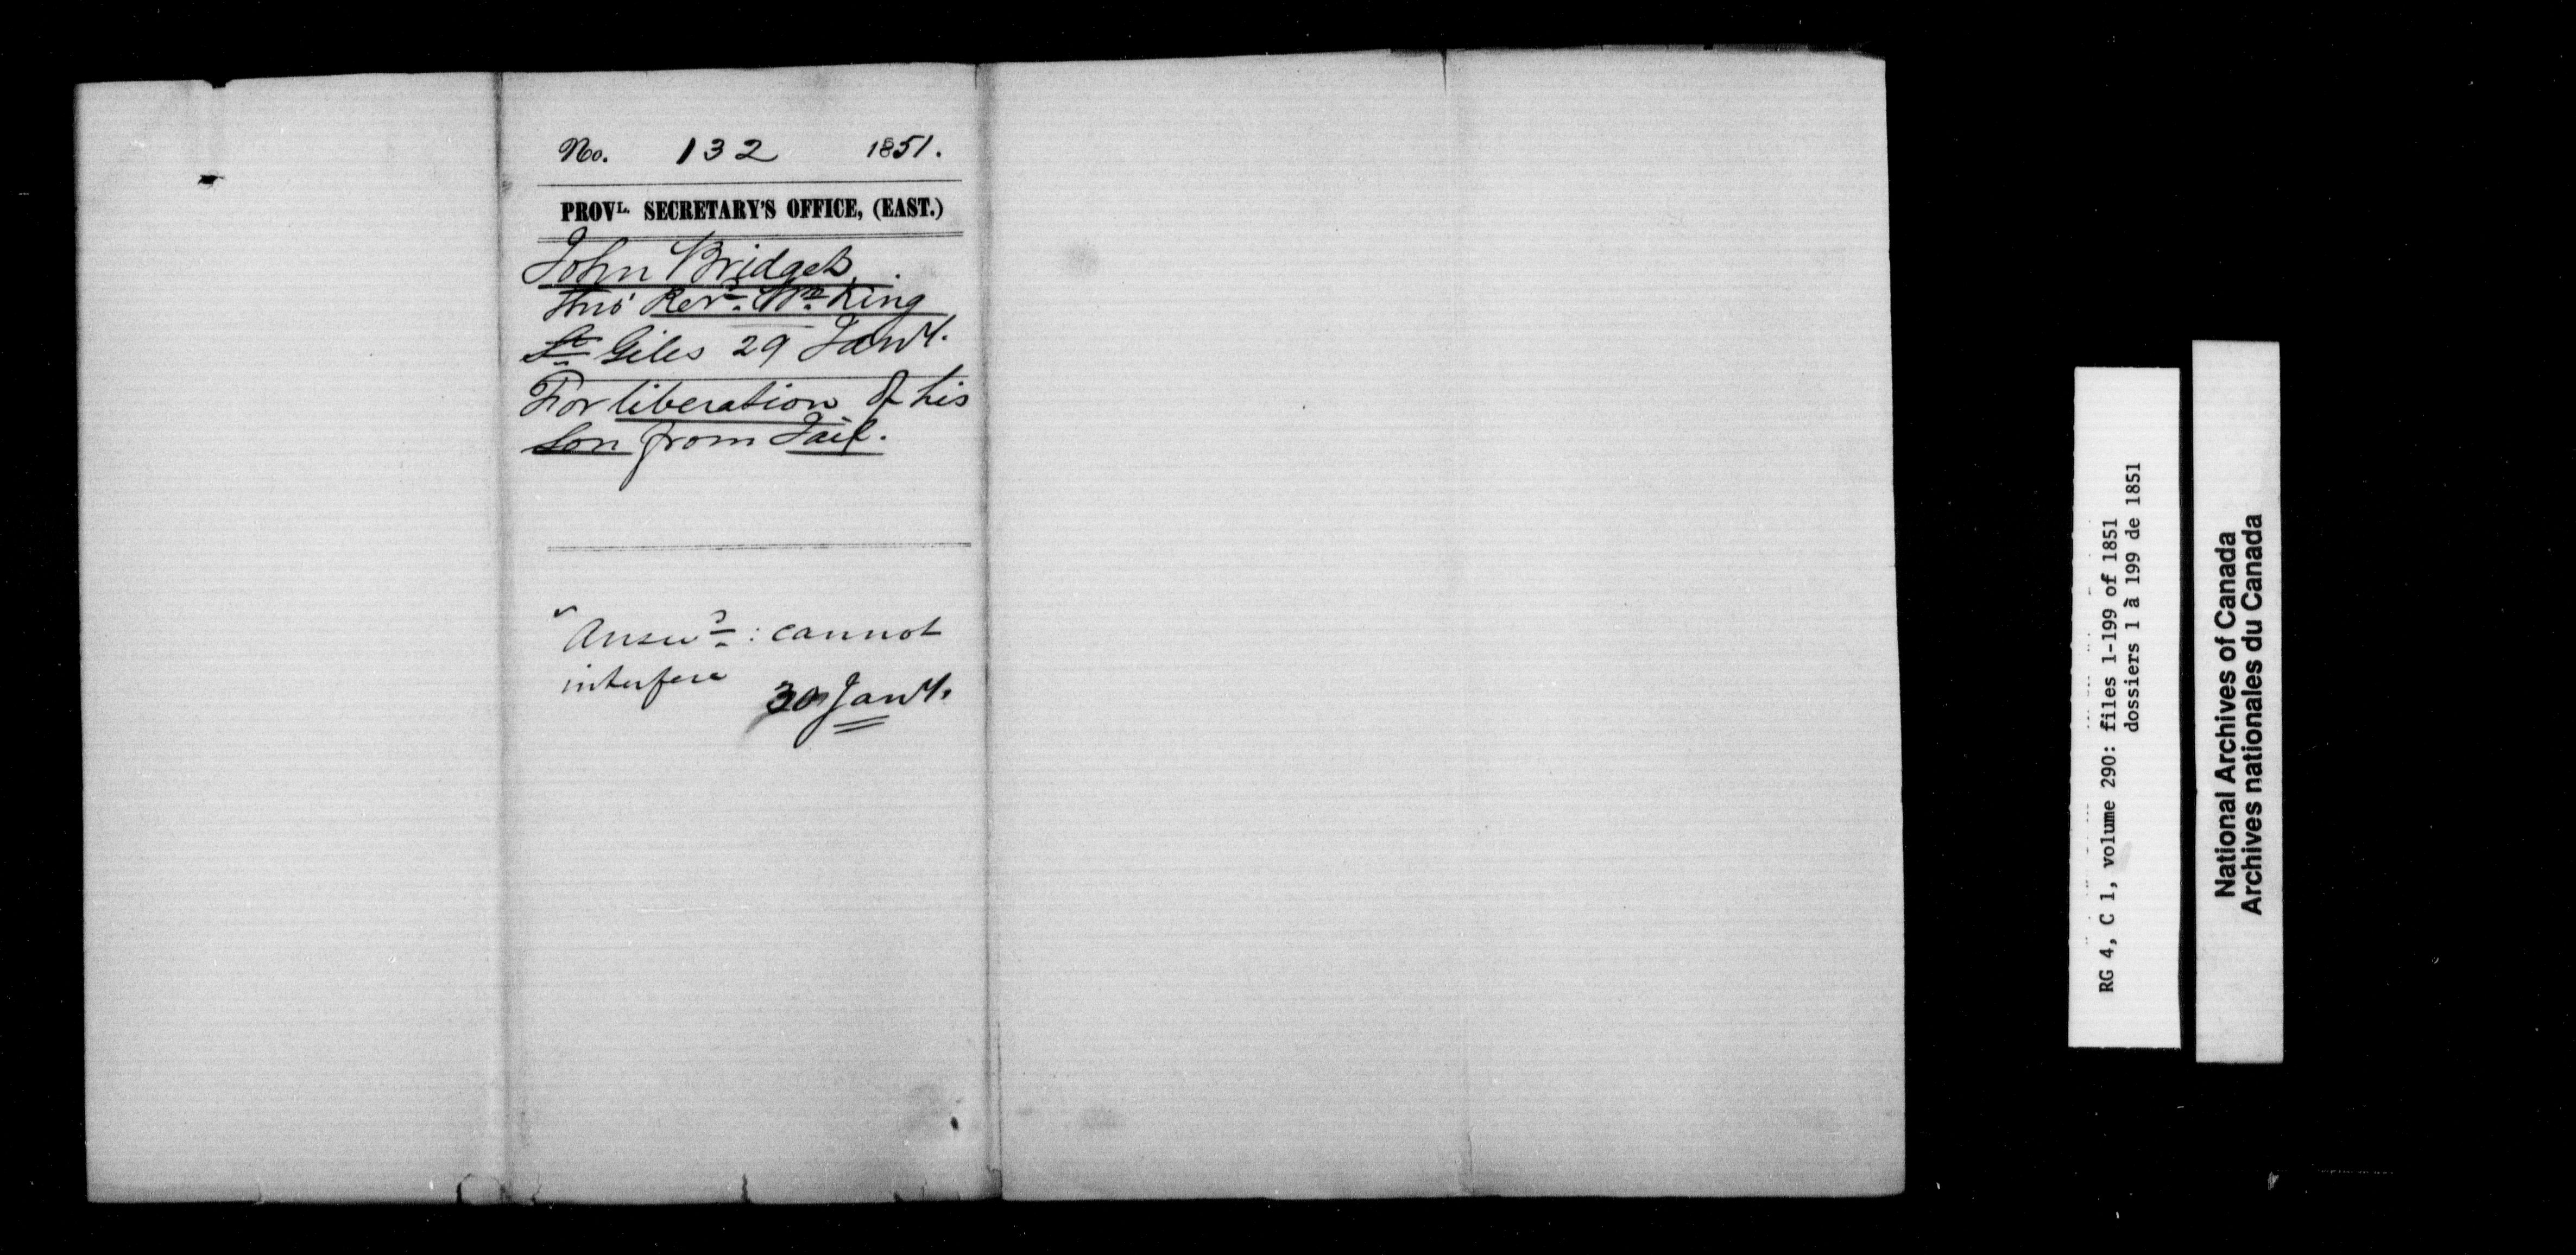 No. 132 1851.
PROVL. SECRETARY'S OFFICE, (EAST.)
John Bridgets
thro' Revd. Wm King
St Giles 29 Jany.
For liberation of his
Son from Jail.
Answd: cannot
interfere
30 Jany.
RG 4, C 1, volume 290: files 1-199 of 1851
dossiers 1 à 199 de 1851
National Archives of Canada
Archives nationales du Canada